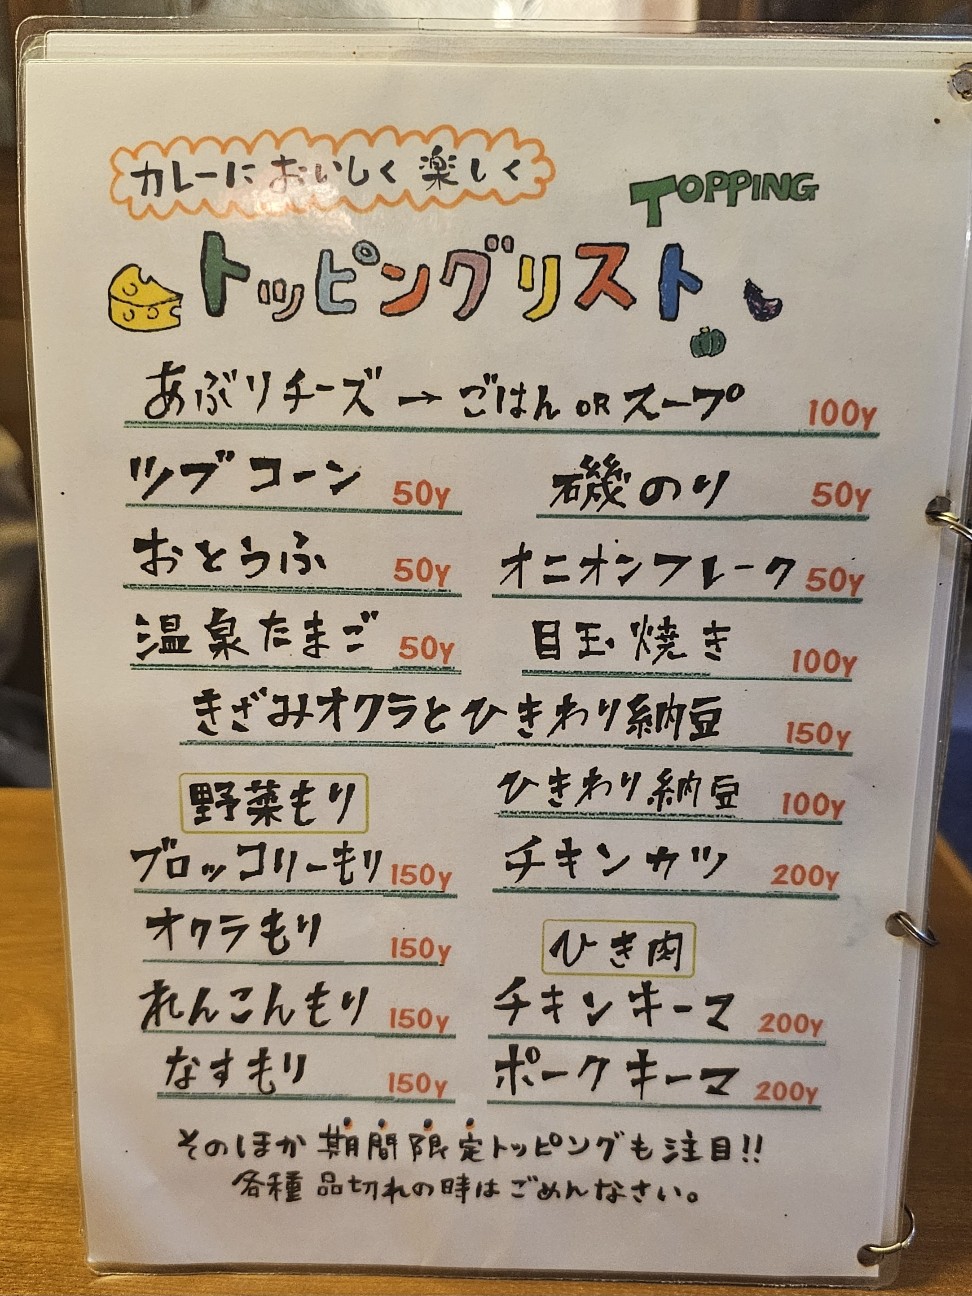 カレーにおいしく楽しく
TOPPING
トッピングリスト
あぶりチーズ→ごはん OR スープ 100y
ツブコーン 50y
磯のり 50y
おとうふ 50y
オニオンフレーク 50y
温泉たまご 50y
目玉焼き 100y
きざみオクラとひきわり納豆 150y
野菜もり
ひきわり納豆 100y
ブロッコリーもり 150y
チキンカツ 200y
オクラもり 150y
ひき肉
れんこんもり 150y
チキンキーマ 200y
なすもり 150y
ポークキーマ 200y
そのほか期間限定トッピングも注目!!
各種品切れの時はごめんなさい。